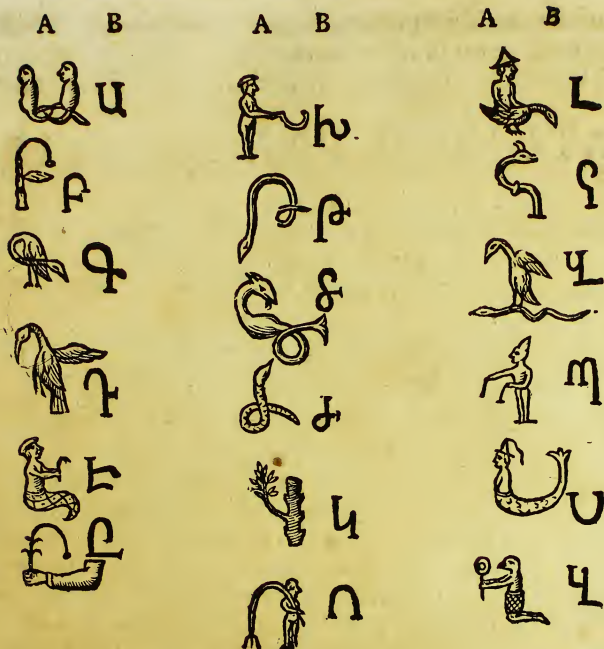 A B
Ա
Բ
Գ
Դ
Է
Ը
A B
Խ.
Թ
Կ
Ո
A B
Լ
Վ
Պ
Ս
Վ